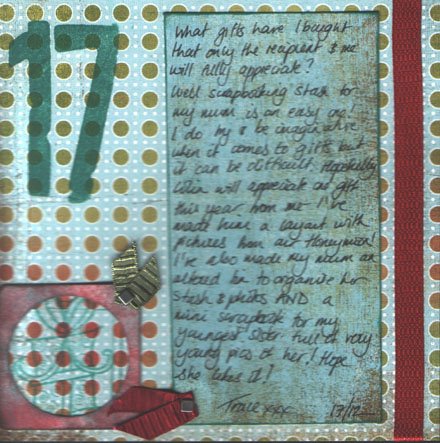 17
What gifts have I bought
that only the recipient & me
will fully appreciate?
Well scrapbooking stash for
my mum is an easy one!
I do try & be imaginative
when it comes to gifts but
it can be difficult. Hopefully
will appreciate his gift
this year from me. I've
made him a layout with
pictures from our Honeymoon!
I've also made my mum an
altered tin to organise her
stash & photos AND a
mini scrapbook for my
youngest sister full of very
young pics of her! Hope
she likes it!
Tracie xxx 13/12